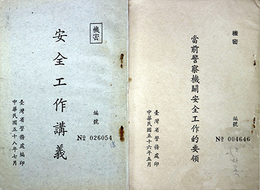 機密
安全工作講義
編號
№ 026054
臺灣省警務處編印
中華民國五十八年七月
機密
當前警察機關安全工作的要領
編號
№ 004646
臺灣省警務處編印
中華民國五十六年五月